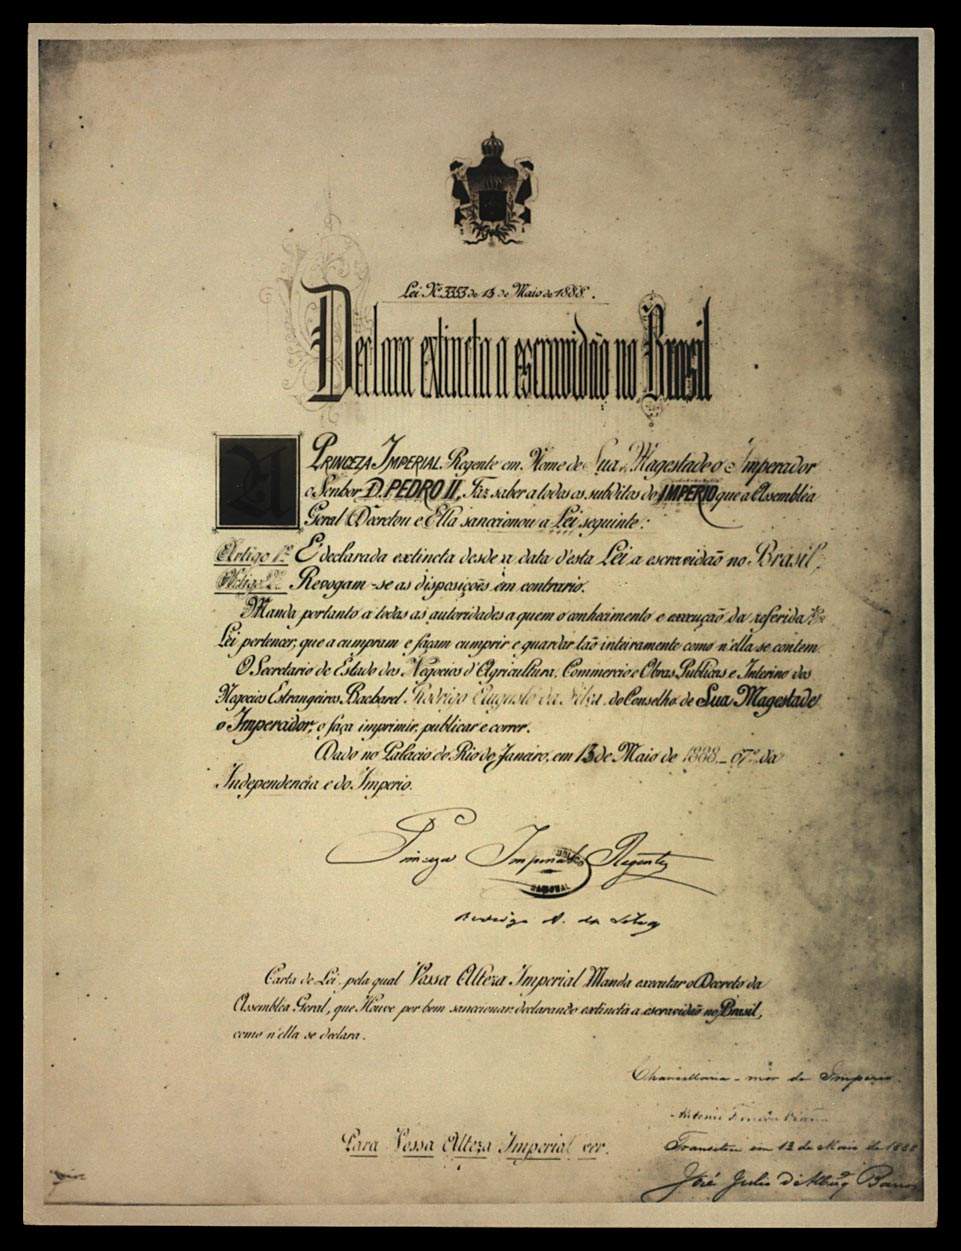 Lei Nº 3353 de 13 de Maio de 1888.
Declara extincta a escravidão no Brasil
A PRINCEZA IMPERIAL Regente em Nome de Sua Magestade o Imperador
o Senhor D. PEDRO II, Faz saber a todos os subditos do IMPERIO que a Assembléa
Geral Decretou e Ella sanccionou a Lei seguinte:
Artigo 1º É declarada extincta desde a data d'esta Lei a escravidão no Brasil.
Artigo 2º Revogam-se as disposições em contrario.
Manda portanto a todas as autoridades a quem o conhecimento e execução da referida
Lei pertencer, que a cumpram e façam cumprir e guardar tão inteiramente como n'ella se contem.
O Secretario de Estado dos Negocios d'Agricultura, Commercio e Obras Publicas e Interino dos
Negocios Estrangeiros, Bacharel Rodrigo Augusto da Silva, do Conselho de Sua Magestade
o Imperador, o faça imprimir, publicar e correr.
Dado no Palacio do Rio de Janeiro, em 13 de Maio de 1888 - 67º da
Independencia e do Imperio.
Princeza Imperial Regente
NACIONAL
Rodrigo A. da Silva
Carta de Lei, pela qual Vossa Alteza Imperial Manda executar o Decreto da
Assembléa Geral, que Houve por bem sanccionar declarando extincta a escravidão no Brasil,
como n'ella se declara.
Chancellaria-mór do Imperio.
Antonio Ferreira Vianna
Para Vossa Alteza Imperial ver.
Transitou em 13 de Maio de 1888
José Julio d'Albuqº Barros